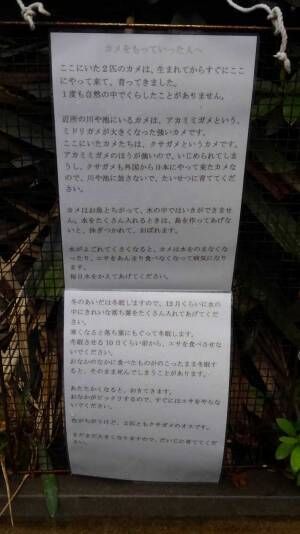 カメをもっていった人へ
ここにいた２匹のカメは、生まれてからすぐにここ
にやって来て、育ってきました。
１度も自然の中でくらしたことがありません。
近所の川や池にいるカメは、アカミミガメという、
ミドリガメが大きくなった強いカメです。
ここにいたカメたちは、クサガメというカメです。
アカミミガメのほうが強いので、いじめられてしま
うし、クサガメも外国から日本にやって来たカメな
ので、川や池に放さないで、たいせつに育ててくだ
さい。
カメはお魚とちがって、水の中ではいきができませ
ん。水をたくさん入れるときは、島を作ってあげな
いと、泳ぎつかれて、おぼれます。
水がよごれてくさくなると、カメは水をのまなくな
ったり、エサをあんまり食べなくなって病気になり
ます。
毎日水をかえてあげてください。
冬のあいだは冬眠しますので、12月くらいに水の
中にきれいな落ち葉をたくさん入れてあげてくださ
い。
寒くなると落ち葉にもぐって冬眠します。
冬眠させる10日くらい前から、エサを食べさせな
いでください。
おなかのなかに食べたものがのこったまま冬眠す
ると、そのまましんでしまうことがあります。
あたたかくなると、おきてきます。
おなかがビックリするので、すぐにはエサをやらな
いでください。
色がちがうけど、２匹ともクサガメのオスです。
まだまだ大きくなりますので、だいじに育ててくだ
さい。